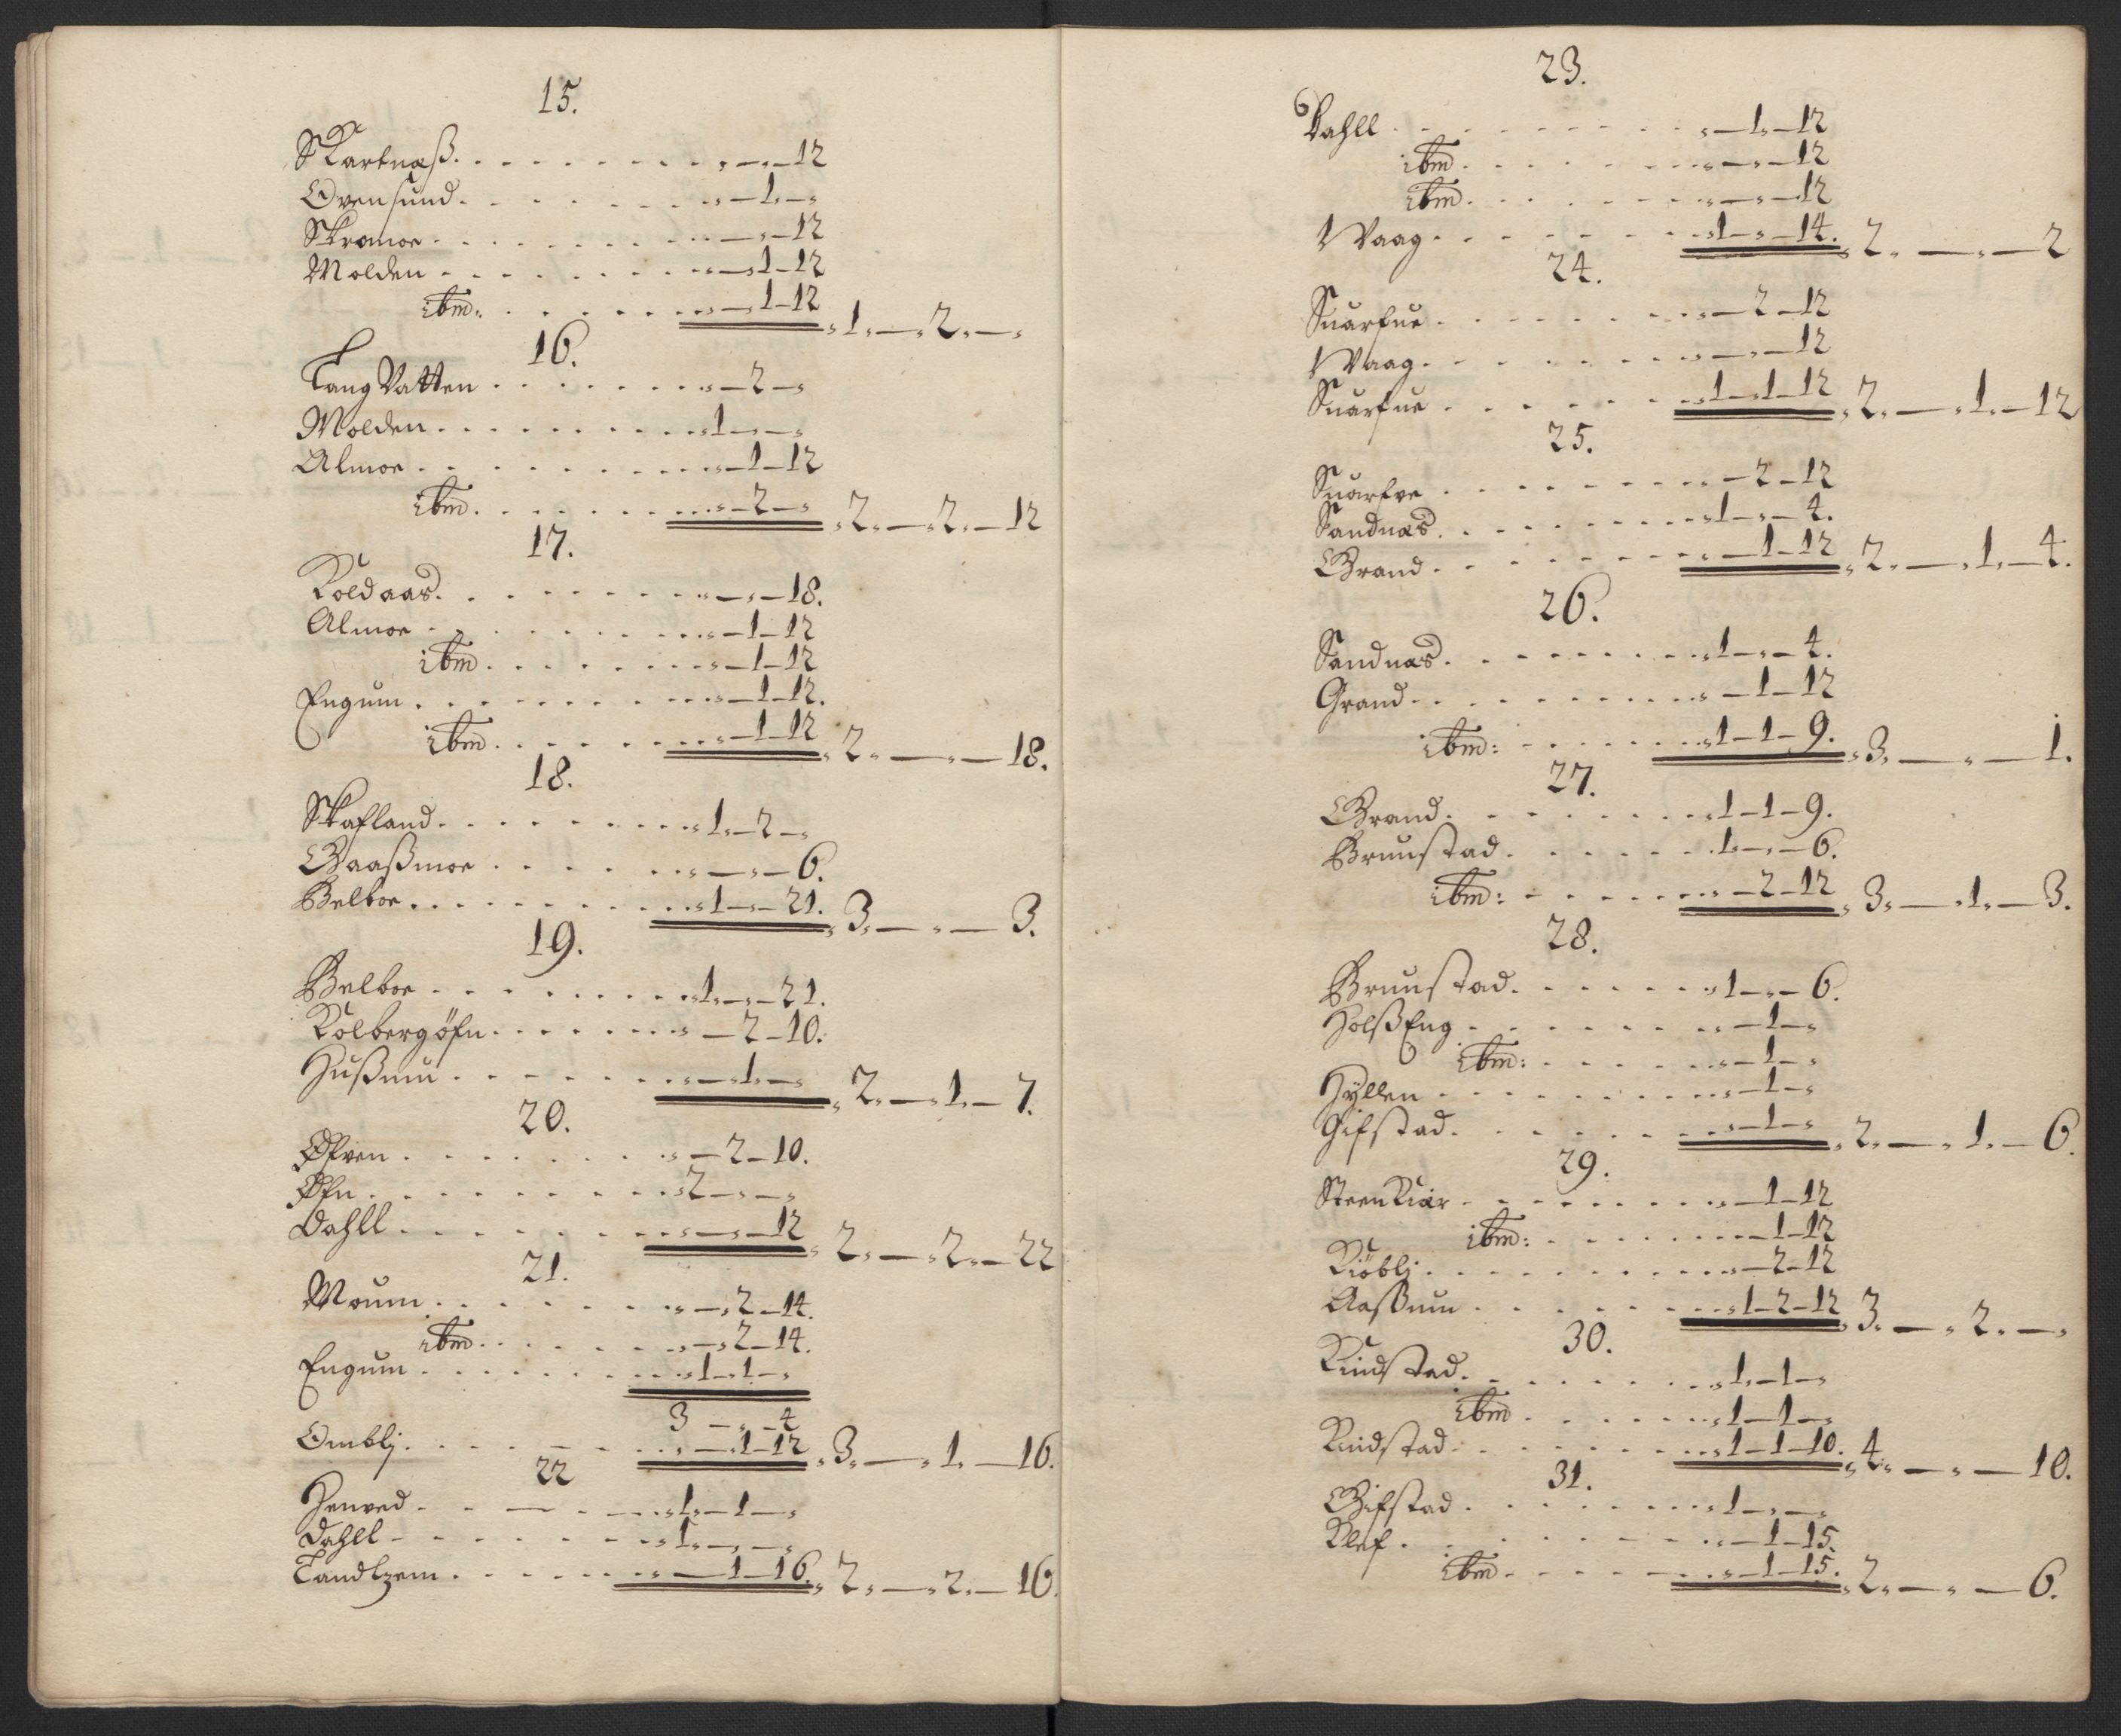 15.
SKartnæß. . . . . . . . . . „ — „ — 12
Ovensund. . . . . . . . . „ — 1 — „
Skromoe . . . . . . . . . „ — „ — 12
Molden . . . . . . . . . „ — 1 — 12
ibm: . . . . . . . „ — 1 — 12 „ 1. — „ 2. — „
16.
Tang Vatten . . . . . . . „ — 2 — „
Molden . . . . . . . . . „ 1 — „ — „
Almoe . . . . . . . . . „ — 1 — 12
ibm. . . . . . . . „ — 2 — „ „ 2. — „ 2. — 12
17.
Koldaas. . . . . . . . . „ — „ — 18.
Almoe . . . . . . . . . „ — 1 — 12
ibm . . . . . . . . „ — 1 — 12
Engum . . . . . . . . . „ — 1 — 12.
ibm. . . . . . . . „ — 1 — 12 „ 2. — „ — 18.
18.
Skafland. . . . . . . . . „ 1. — 2 — „
Gaaßmoe . . . . . . . „ — „ — 6.
Belboe . . . . . . . . . „ 1 — „ — 21. „ 3. — „ — 3.
19.
Belboe . . . . . . . . . „ 1. — „ — 21.
Kolbergöfn . . . . . . . „ — 2 — 10.
Hußum . . . . . . . . „ — 1. — „ „ 2. — „ 1. — 7.
20.
Øfven . . . . . . . . „ — 2 — 10.
Øfn . . . . . . . . . „ 2 — „ — „
Dahll . . . . . . . . „ — „ — 12 „ 2. — „ 2. — 22
21.
Moum . . . . . . . . „ — „ 2 — 14.
ibm . . . . . . . „ — „ 2 — 14.
Engum . . . . . . . . „ 1 — 1 — „
3 — „ — 4
Ombli. . . . . . . . . „ — 1 — 12 „ 3. — „ 1. — 16.
22
Henved . . . . . . „ 1. — 1 — „
Dahll . . . . . . . . „ 1. — „ — „
Landtzem . . . . . . . „ — 1 — 16. „ 2. — „ 2. — 16.
23.
Dahll . . . . . . . . . „ — 1. — 12
ibm . . . . . . . . „ — „ — 12
ibm . . . . . . . . „ — „ — 12
Waag . . . . . . . . „ 1 — „ — 14. „ 2. — „ — 2
24.
Suarfue . . . . . . . . „ — 2 — 12
Waag . . . . . . . . „ — „ — 12
Suarfue . . . . . . . „ 1 — 1 — 12 „ 2. — „ 1. — 12
25.
Suarfve . . . . . . . . „ — 2 — 12
Sandnæs. . . . . . . . . „ 1 — „ — 4.
Grand . . . . . . . . „ — 1 — 12 „ 2. — „ 1. — 4.
26.
Sandnæs. . . . . . . . . „ 1 — „ — 4.
Grand . . . . . . . . . „ — 1 — 12
ibm: . . . . . . . „ 1 — 1 — 9. „ 3. — „ — 1.
27.
Grand . . . . . . . . „ 1 — 1 — 9.
Brunstad . . . . . . . „ 1. — „ — 6.
ibm: . . . . . . . „ — 2 — 12 „ 3. — „ 1. — 3.
28.
Brunstad. . . . . . . . „ 1 — „ — 6.
HolßEng . . . . . . . „ — 1 — „
ibm: . . . . . . „ — 1 — „
Hyllen . . . . . . . . „ — 1 — „
Gifstad. . . . . . . . „ — 1 — „ „ 2. — „ 1. — 6.
29.
SteenKiær . . . . . . . „ — 1 — 12
ibm: . . . . . . . — 1 — 12
Kiöbli . . . . . . . . „ — 2 — 12
Aaßum . . . . . . . „ 1 — 2 — 12 „ 3. — „ 2. — „
30.
Rindstad. . . . . . . . „ 1. — 1 — „
ibm . . . . . . „ 1 — 1 — „
Rindstad . . . . . . . „ 1 — 1 — 10. „ 4. — „ — 10.
31.
Gifstad . . . . . . . „ 1 — „ — „
Klef . . . . . . . . „ — 1 — 15.
ibm . . . . . . . „ — 1 — 15. „ 2. — „ — 6.